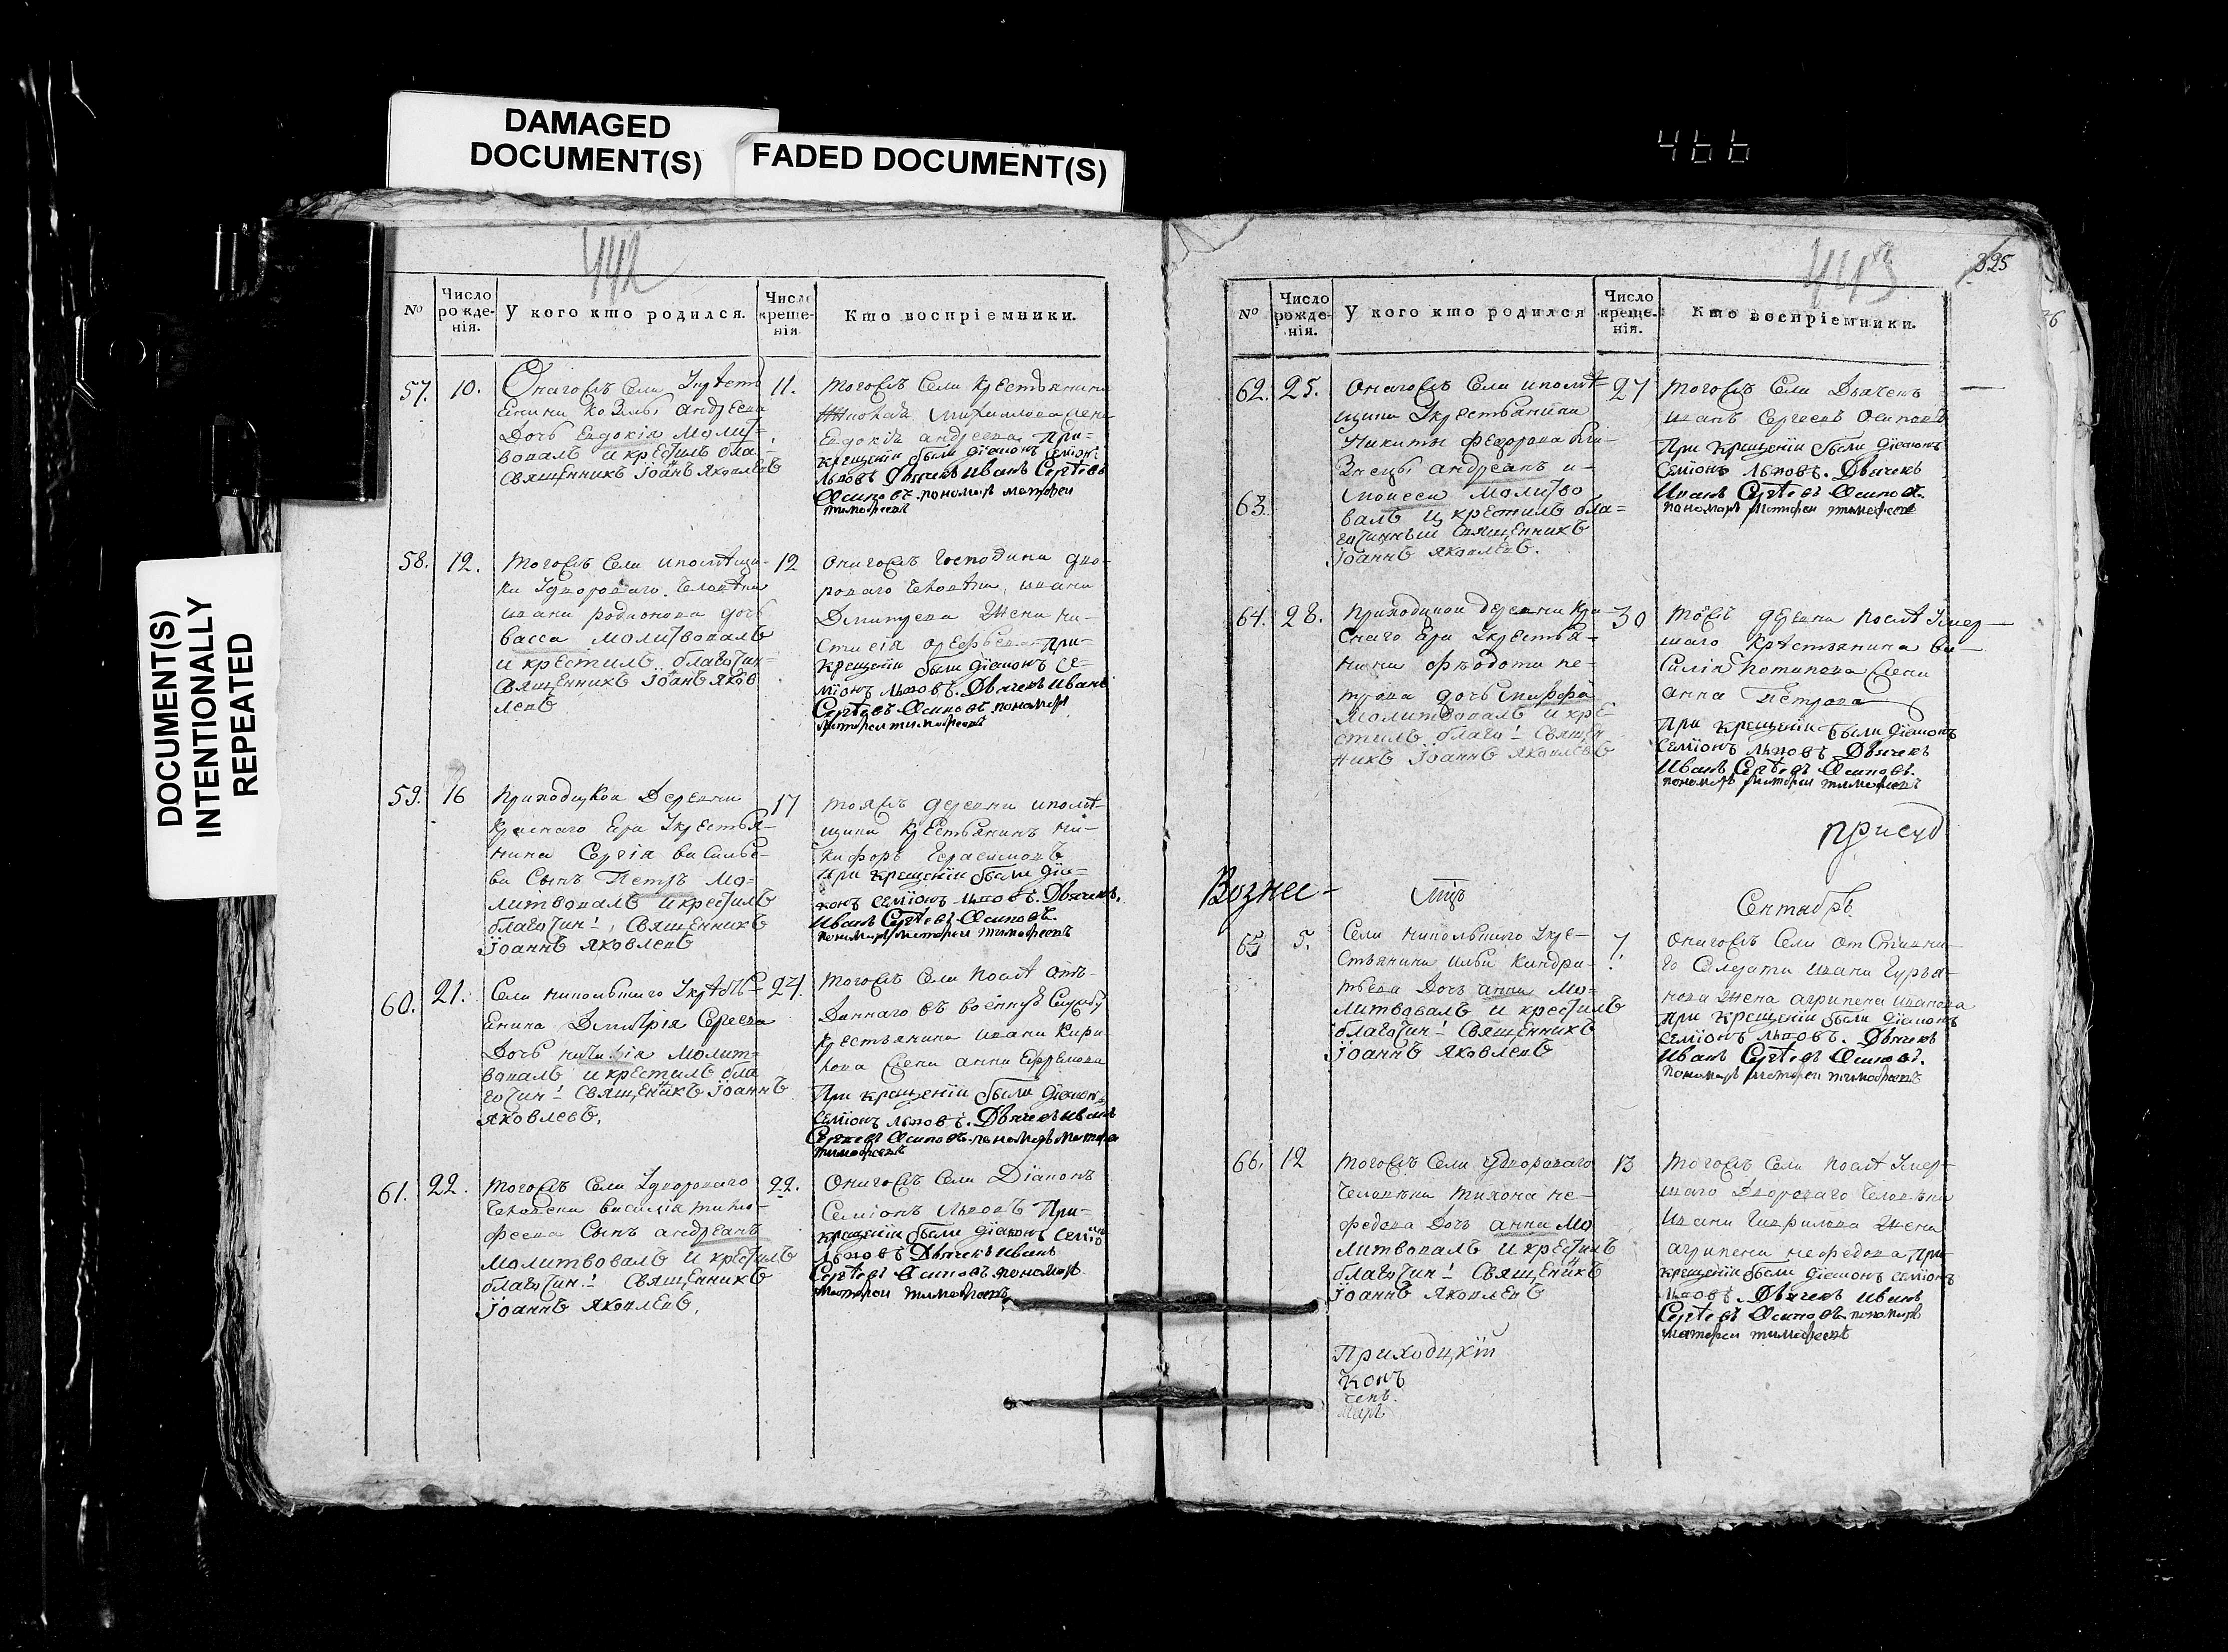 DAMAGED
DOCUMENT(S)
FADED DOCUMENT(S)
466
DOCUMENT(S)
INTENTIONALLY
REPEATED
442
№
Число рожденія.
У кого кто родился.
Число крещенія
Кто воспріемники.
57.
10.
Онагожъ села
Козьмы Андреева
Дочь Евдокія молит-
вовалъ и крестилъ бла-
священникъ Іоанъ Яковлевъ
11.
тогожъ села крестьянина
Евдокія андреева При-
крещеніи были діаконъ семіонъ
Львовъ Дьячекъ Иванъ Сергѣевъ
Осиповъ пономарь матфеи
тимофеевъ
58.
12.
тогожъ села
человѣка
ивана родионова дочь
васса молитвовалъ
и крестилъ благочин-
священникъ Іоанъ Яков
левъ
12
онагожъ господина дво-
роваго человѣка ивана
Дмитреева жена на-
стасія При-
крещеніи были діаконъ се-
міонъ львовъ. Дьячекъ Иванъ
Сергѣевъ Осиповъ пономарь
матфеи тимофеевъ
59.
16
Приходцкой Деревни
Краснаго Яра Ӱкрестья-
нина Сергія василье-
ва Сынъ Петръ мо-
литвовалъ и крестилъ
благочин! священникъ
Іоаннъ Яковлевъ
17
тояжъ деревни
крестьянинъ ни-
кифоръ Герасимовъ
при крещеніи были діа-
конъ семіонъ львовъ. Дьячекъ.
Иванъ Сергѣевъ Осиповъ.
пономарь матфеи тимофеевъ
60.
21.
Села никольшаго
Дмитрія Сергеева
Дочь молит-
вовалъ и крестилъ бла
гочин! священикъ Іоаннъ
Яковлевъ.
24.
тогожъ села послѣ отъ-
даннаго въ военную службу
крестьянина ивана Кири
лова жена анна Ефремова
При крещеніи были діаконъ
семіонъ львовъ. Дьячекъ иванъ
Сергѣевъ Осиповъ. пономарь матфеи
тимофеевъ
61.
22.
тогожъ села Ӱдвороваго
человека василія тимо-
феева Сынъ андреанъ
молитвовалъ и крестилъ
благочин! священникъ
Іоаннъ Яковлевъ.
22.
Онагожъ села Діаконъ
Семіонъ Львовъ При-
крещеніи были діаконъ семіо
львовъ Дьячекъ иванъ
Сергѣевъ Осиповъ пономарь
матфеи тимофеевъ
443
325
№
Число рожденія.
У кого кто родился
Число крещенія.
Кто воспріемники.
62.
25.
Онагожъ села
щика Ӱкрестьянина
Никиты Федорова бли-
знецы андреанъ и-
63.
моисеи молитво
валъ и крестилъ бла=
гочинный священникъ
Іоаннъ Яковлевъ.
27
тогожъ села Дьячекъ
иванъ Сергеевъ Осиповъ
При крещеніи были діаконъ
Семіонъ львовъ. Дьячекъ
Иванъ Сергѣевъ Осиповъ.
пономарь матфеи тимофеевъ
64.
28.
Приходцкой деревни Кра
снаго Яра Ӱкрестья-
нина Фѣодота пе-
трова дочь
молитвовалъ и кре
стилъ благо! священ
никъ Іоаннъ Яковлевъ
30
тояжъ деревни послѣ Ӱмер-
шаго крестьянина ва-
силія Потапова жена
анна Петрова
При крещеніи были діаконъ
семіонъ львовъ. Дьячекъ
Иванъ Сергѣевъ Осиповъ.
пономарь матфеи тимофеевъ
присуд
Вознес-
Сентябрь.
65
5.
Села никольшаго Ӱкре-
стьянина ильи Кондра-
тьева Дочь анна мо-
литвовалъ и крестилъ
благочин! священникъ
Іоаннъ Яковлевъ
7.
онагожъ села отставна-
го солдата ивана Гурья-
нова жена агрипена иванова
при крещеніи были діаконъ
семіонъ львовъ. Дьячекъ
Иванъ Сергѣевъ Осиповъ.
пономарь матфеи тимофеевъ
66.
12
тогожъ села Ӱдвороваго
человѣка тихона не-
федова Дочь анна мо
литвовалъ и крестилъ
благочин! священикъ
Іоаннъ Яковлевъ
13
тогожъ села послѣ Ӱмер-
шаго двороваго человѣка
ивана Гаврилова жена
агрипена нефедова при
крещеніи были діаконъ семіонъ
львовъ. Дьячекъ иванъ
Сергѣевъ Осиповъ пономарь
матфеи тимофеевъ
Приходцкіи